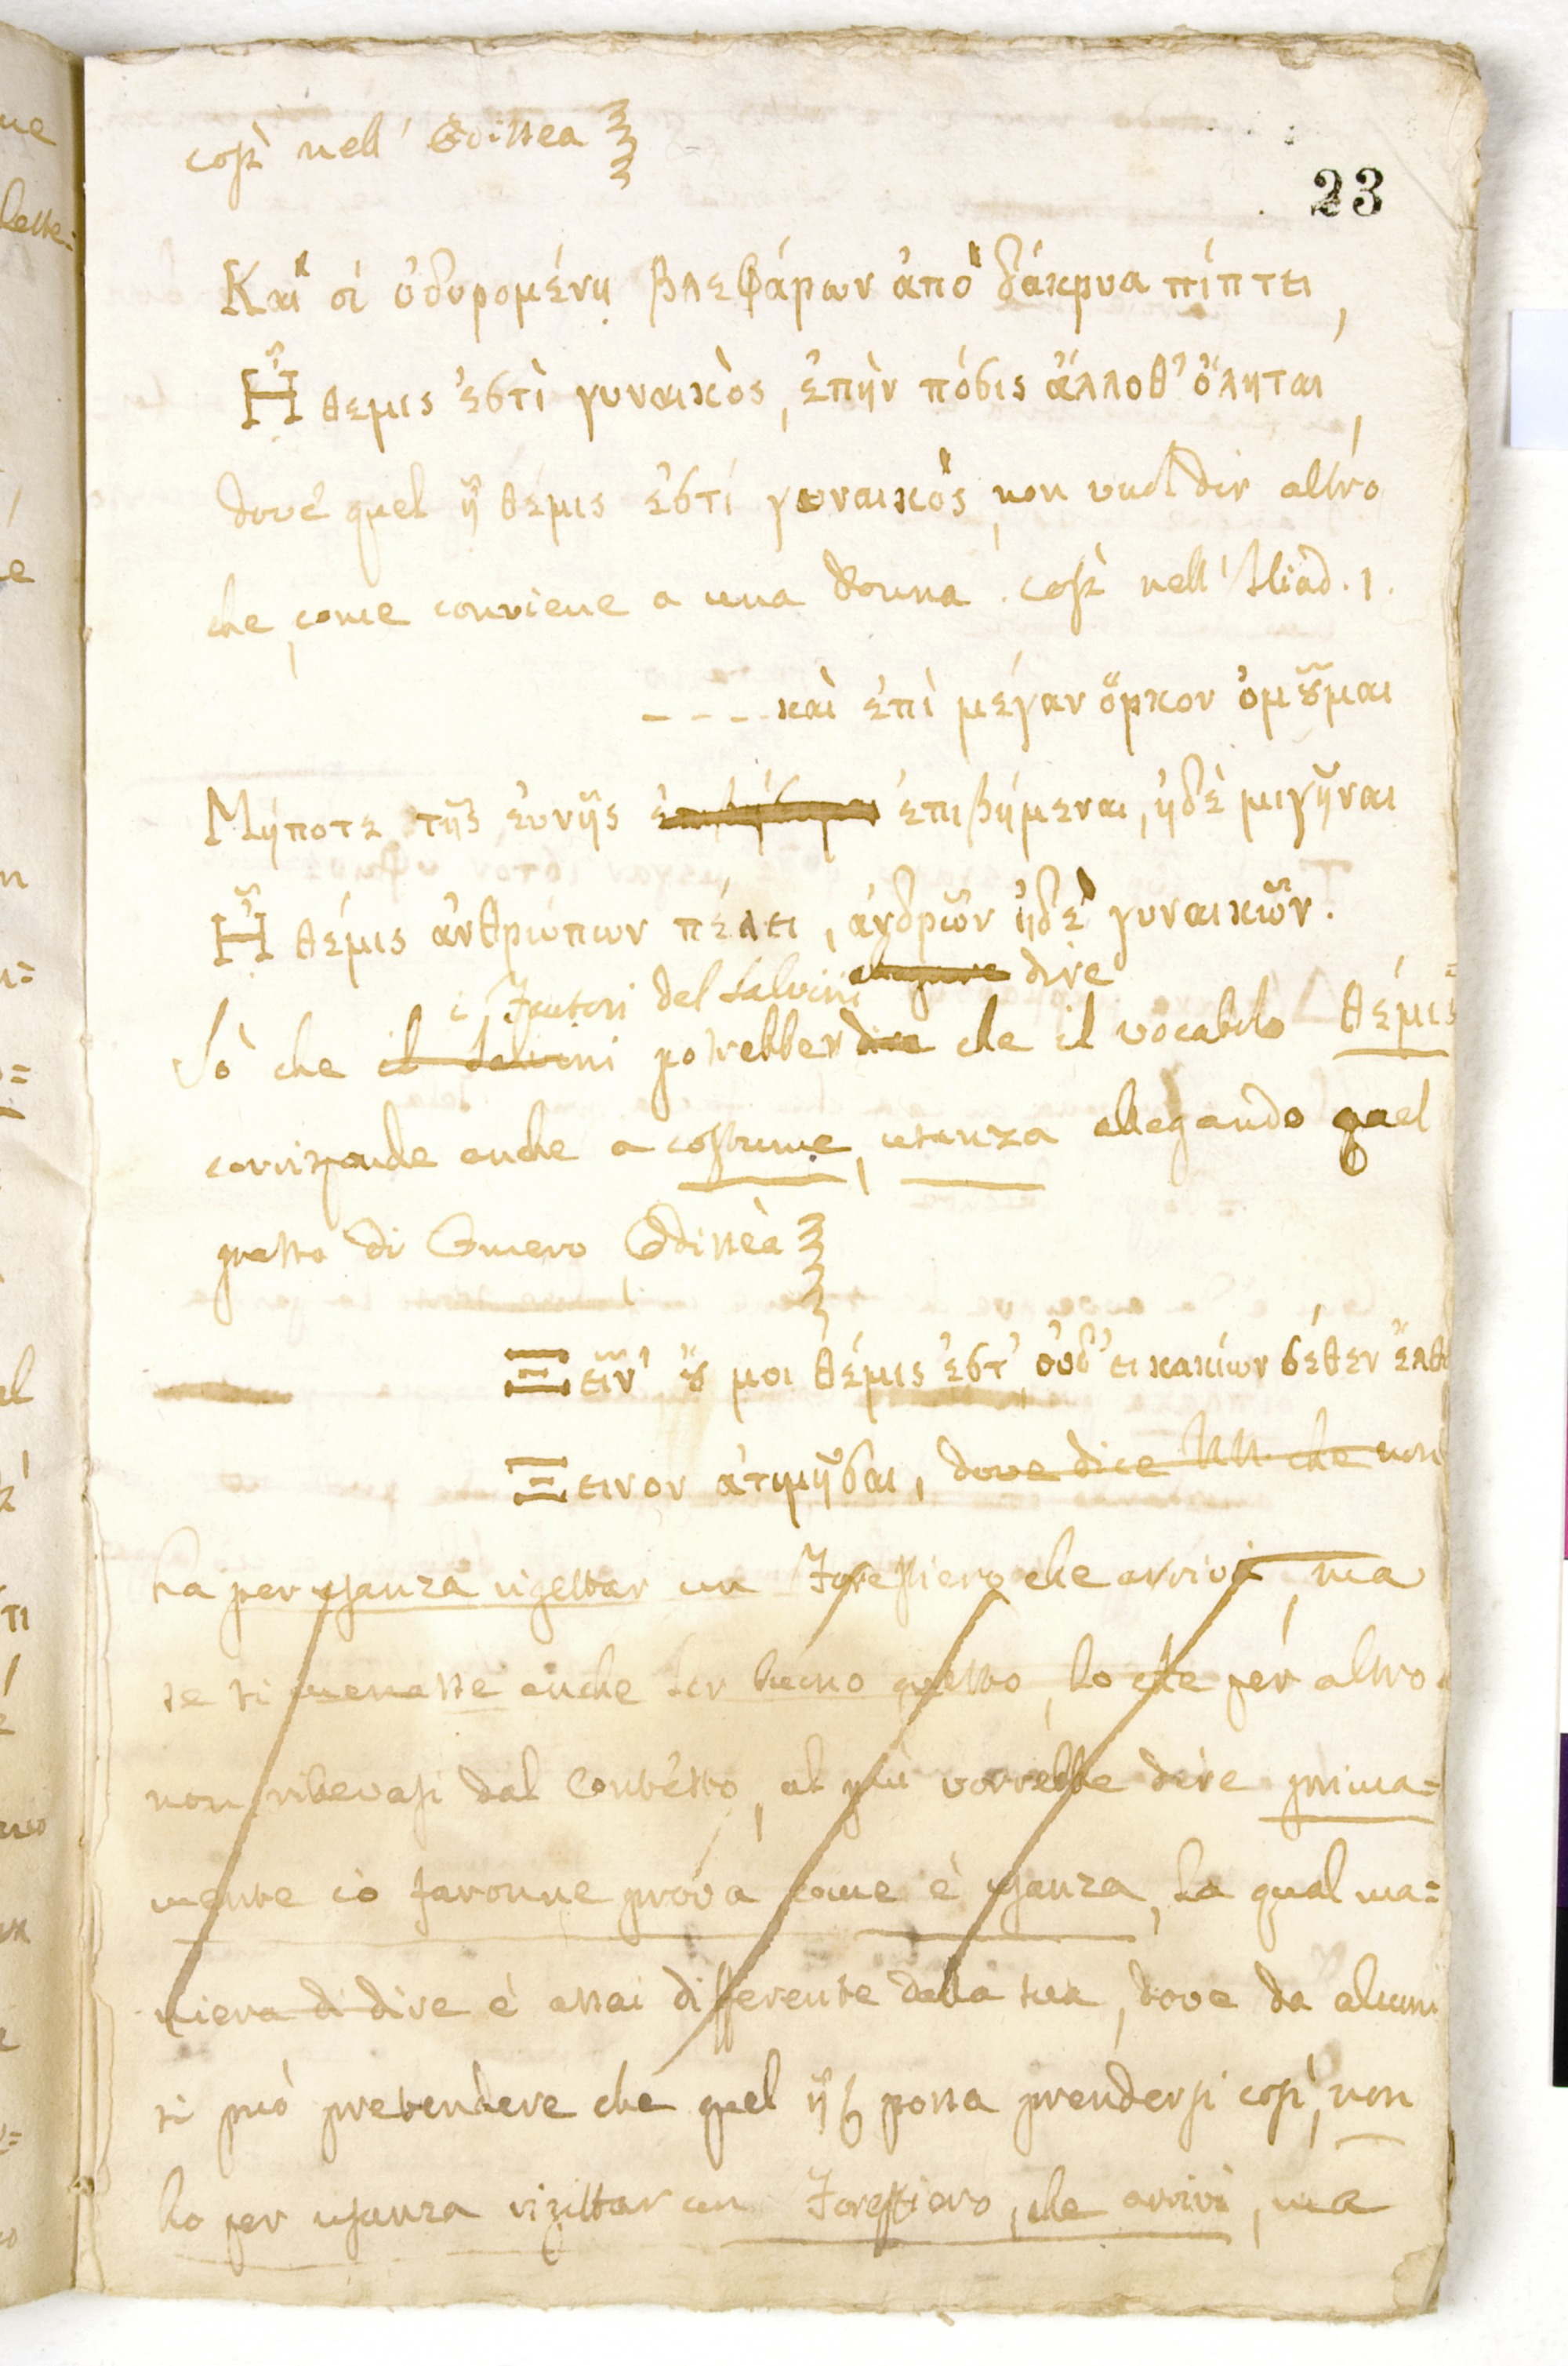 così nell' Odissea ξ
23
Καὶ οἱ ὀδυρομένῃ βλεφάρων ἀπὸ δάκρυα πίπτει,
Ἣ θεμις ἐστὶ γυναικὸς, ἐπὴν πόσις ἄλλοθ' ὄληται,
dove quel ἣ θέμις ἐστί γυναικὸς, non vuol dir altro
che, come conviene a una donna. così nell' Iliad. ι.
---- καὶ ἐπὶ μέγαν ὅρκον ὀμοῦμαι
Μήποτε τῆς ἐυνῆς ἐπιβήμεναι, ἠδὲ μιγῆναι
Ἣ θέμις ἀνθρώπων πέλει, ἀνδρῶν ἠδὲ γυναικῶν.
i Fautori del Salvini dire
Sò che il Salvini potrebber dire che il vocabolo θέμις
corrisponde anche a costume, usanza allegando quel
passo di Omero, Odissèa ξ
Ξεῖν' οὔ μοι θέμις ἐστ', οὐδ' ει κακίων σέθεν ἔλθοι
Ξεινον ἀτιμῆσαι, dove dice Uli. che non
ha per usanza rigettar un Forestiero che arrivi, ma
se si menasse anche per buono questo, lo che per altro
non ribevasi dal Contesto, al più vorrebbe dire prima=
mente io faronne prova come è usanza, la qual ma=
niera di dire è assai differente dalla sua, dove da alcuni
si può pretendere che quel ἣ possa prendersi così, non
ho per usanza rigittar un Forestiero, che arrivi, ma